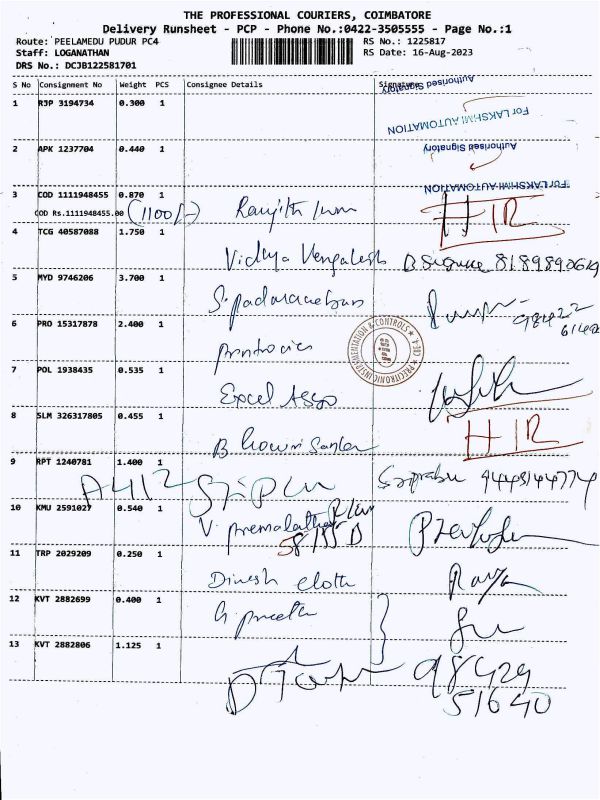 THE PROFESSIONAL COURIERS, COIMBATORE
Delivery Runsheet - PCP - Phone No.:0422-3505555 - Page No.:1
Route: PEELAMEDU PUDUR PC4 RS No.: 1225817
Staff: LOGANATHAN RS Date: 16-Aug-2023
DRS No.: DCJB122581701
S No Consignment No Weight PCS Consignee Details Signature
Authorised Signatory
1 RJP 3194734 0.300 1
For LAKSHMI AUTOMATION
2 APK 1237704 0.440 1
Authorised Signatory
For LAKSHMI AUTOMATION
3 COD 1111948455 0.870 1
COD Rs.1111948455.00 (1100/-) Ranjith HIR
4 TCG 40587088 1.750 1
Vidhya Vengatesh
5 MYD 9746206 3.700 1
S. padmanaban 98422
6 PRO 15317878 2.400 1
PRECITRONIC INSTRUMENTATION & CONTROLS
7 POL 1938435 0.535 1
Excel Asso
8 SLM 326317805 0.455 1
HIR
B. Gowri Sankar
9 RPT 1240781 1.400 1
A412
10 KMU 2591027 0.540 1
V. premalatha
58/55 D
11 TRP 2029209 0.250 1
Dinesh cloth
12 KVT 2882699 0.400 1
G preetha
13 KVT 2882806 1.125 1
98429
51640